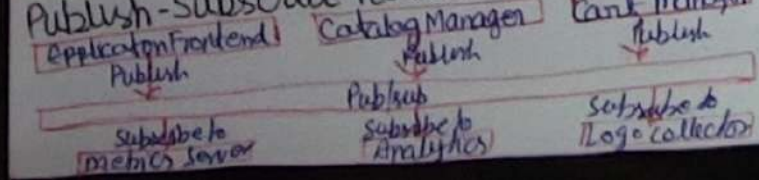 Publish-Subscribe
Application Frontend Catalog Manager Cart Manager
Publish Publish Publish
Pub/sub
Subscribe to Subscribe to Subscribe to
Metrics Server Analytics Logs collector